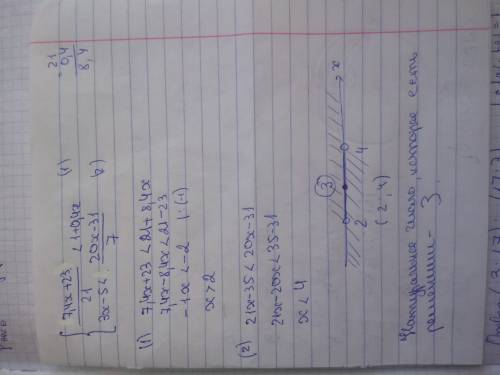 { (7,4x+23)/21 < 1+0,4x (1)
3x-5 < (20x-31)/7 (2)
21
0,4
8,4
(1) 7,4x+23 < 21+8,4x
7,4x-8,4x < 21-23
-1x < -2 |:(-1)
x > 2
(2) 21x-35 < 20x-31
21x-20x < 35-31
x < 4
2 3 4 x
(2, 4)
Натуральне число, которые есть
решением- 3.